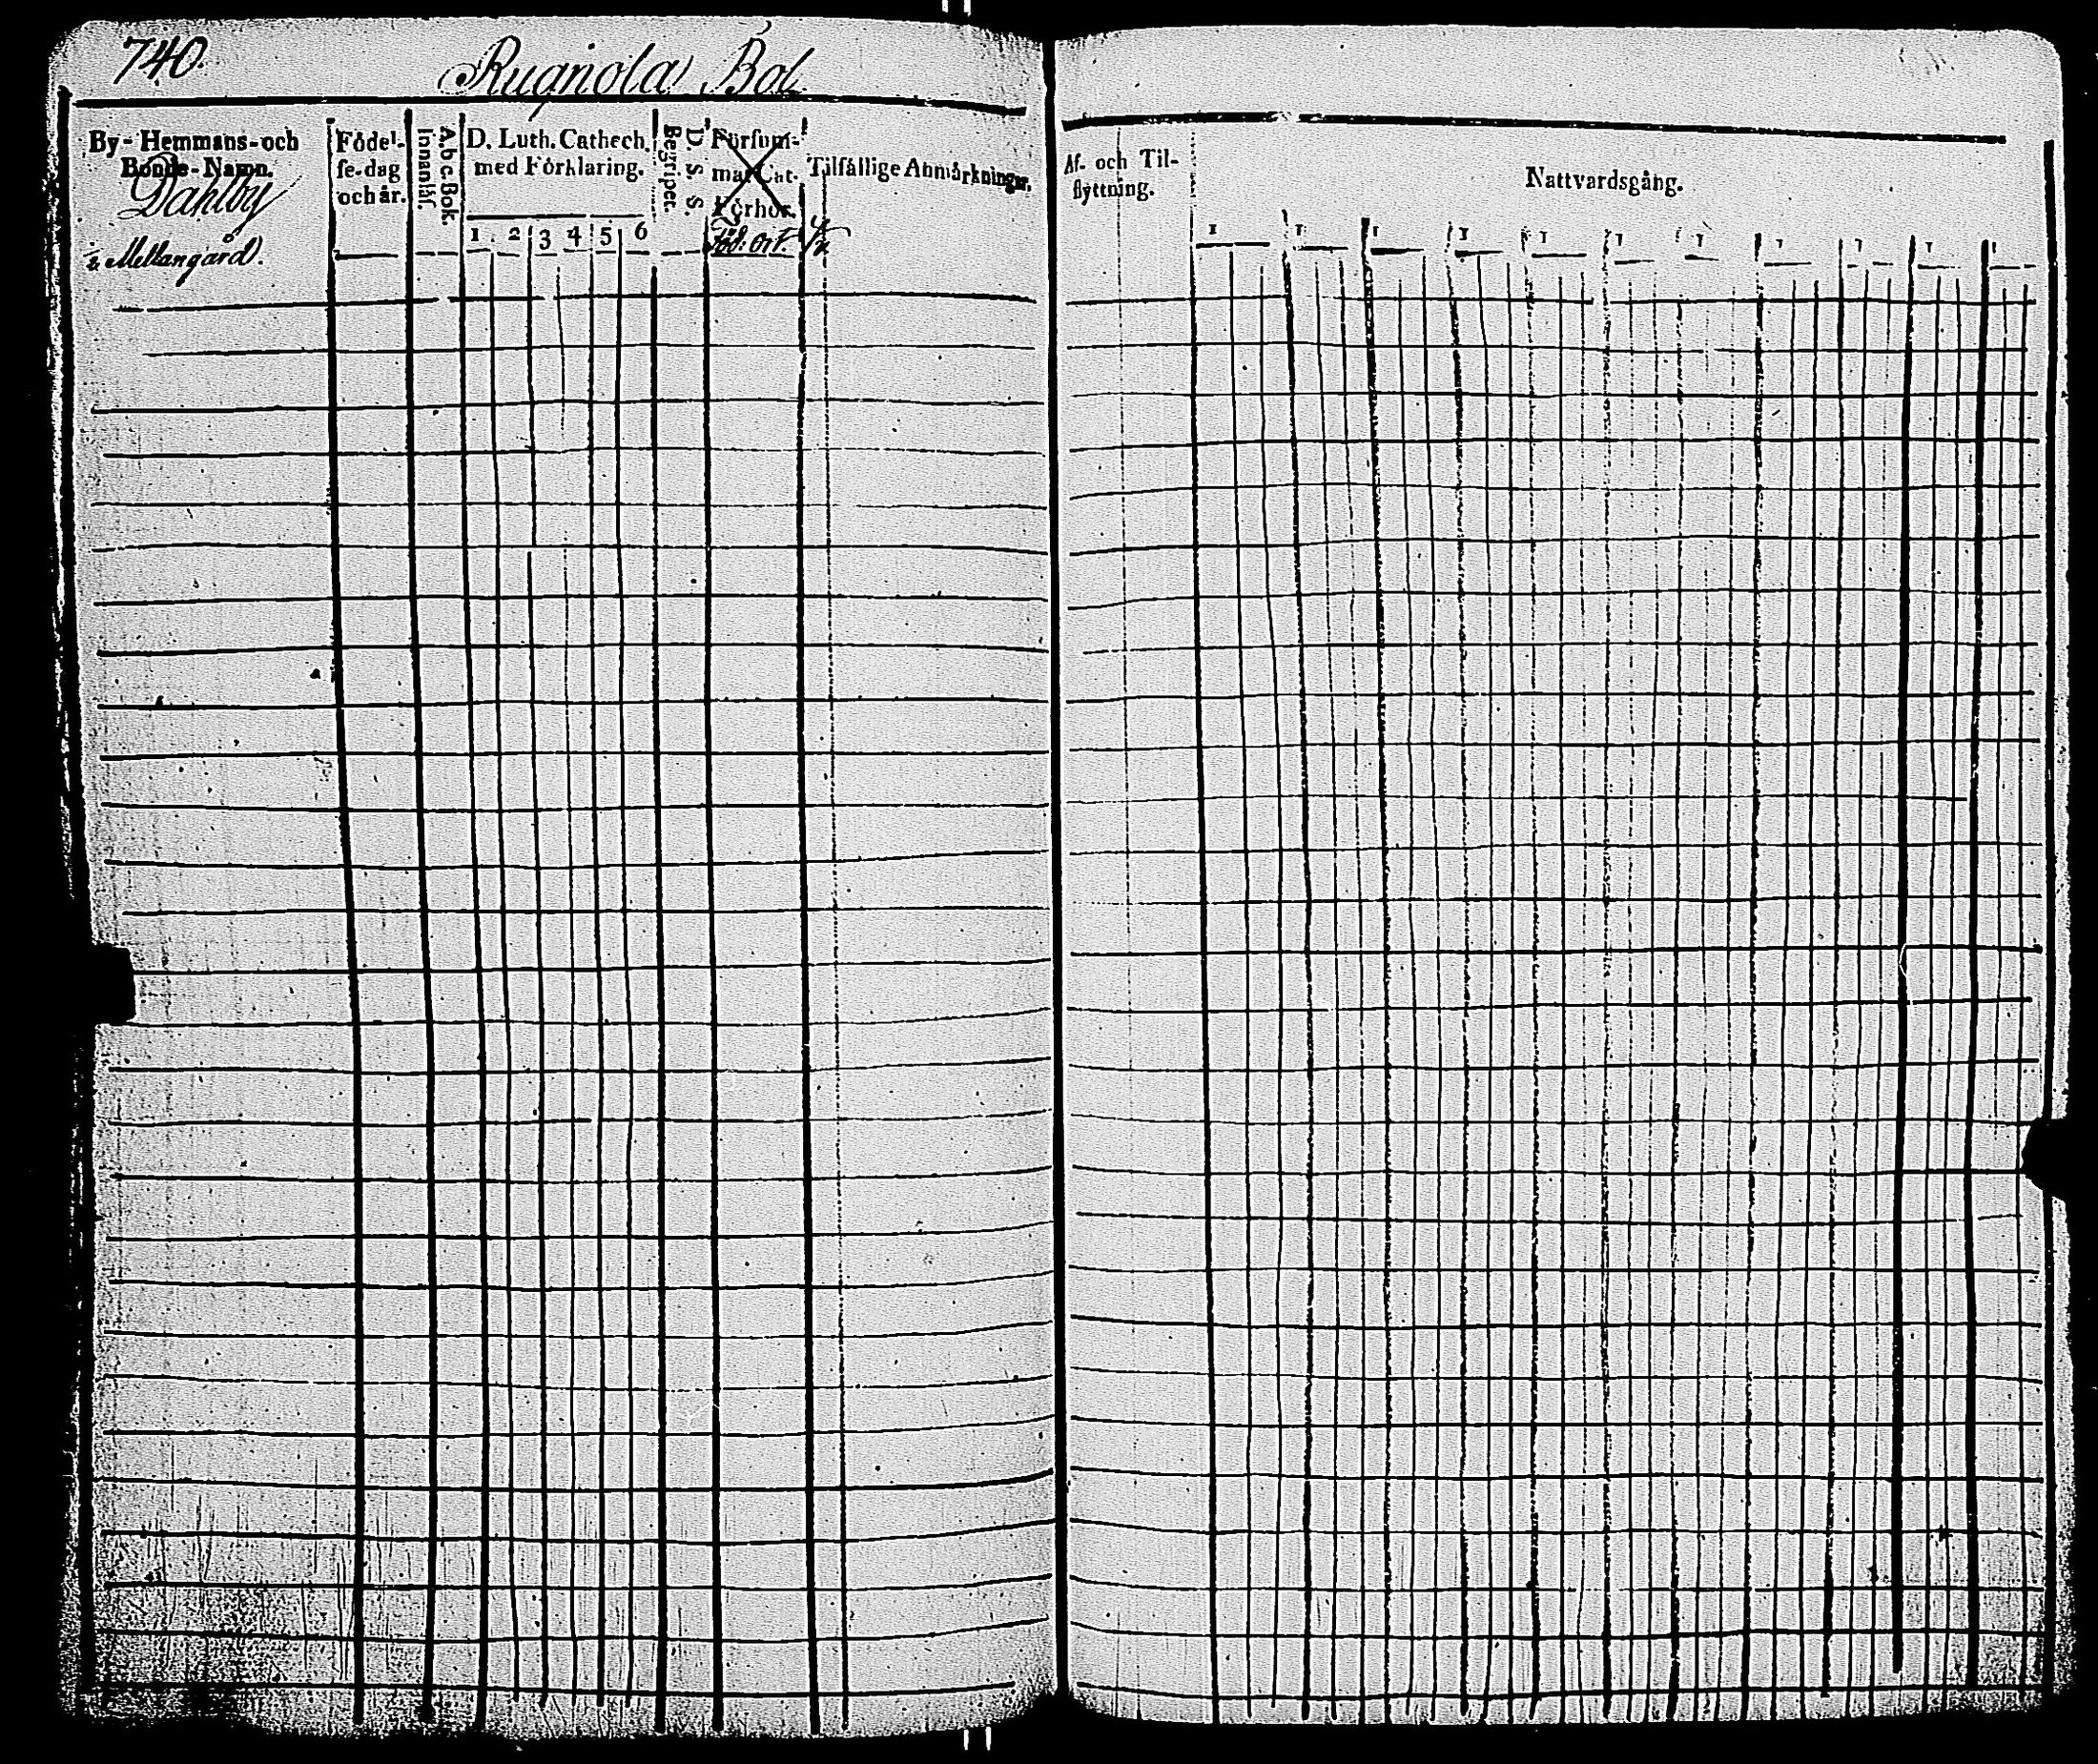 740.
Rugnola Bol
By-Hemmans-och
Bonde-Namn.
Dahlby
Mellangård.
Födel-
se-dag
och år.
A.b.c.Bok.
Innanläs.
D. Luth. Cathech.
med Förklaring.
1 2 3 4 5 6
D. S. S. S.
Begripet.
Försum-
mat Cat.
Förhör.
Föd: Ort.
Tilfällige Anmärkningar.
Af- och Til-
flyttning.
Nattvardsgång.
1 1 1 1 1 1 1 1 1 1 1